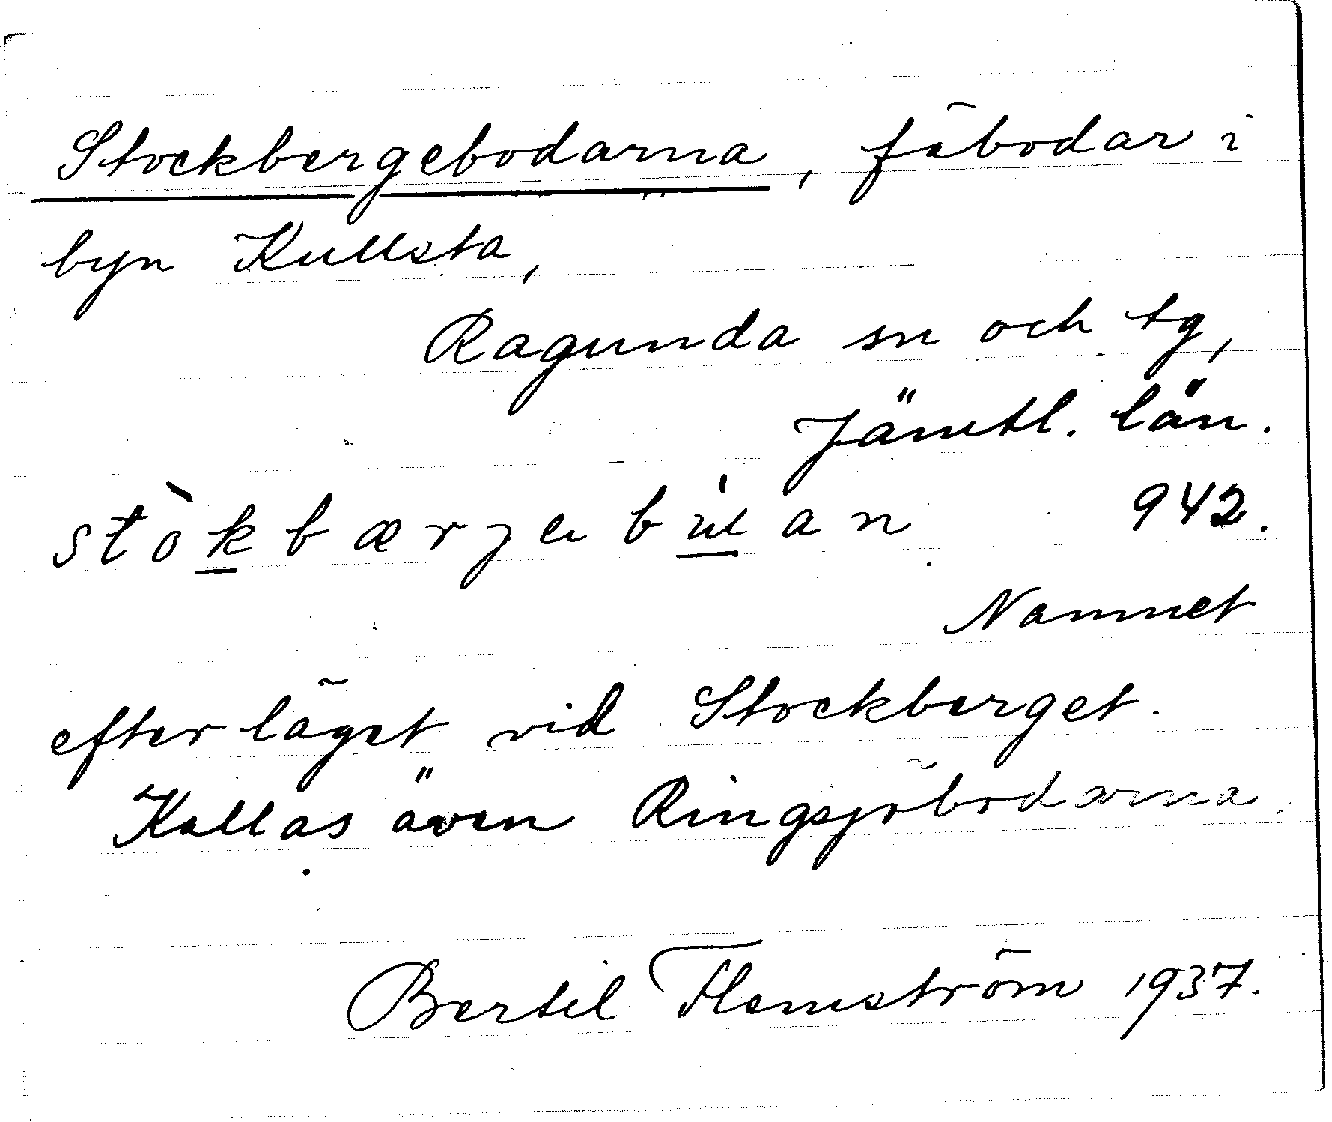 Stockbergebodarna, fäbodar i
byn Kullsta,
Ragunda sn och tg,
Jämtl. län.
stòkbærjebúan 942.
Namnet
efter läget vid Stockberget.
Kallas även Ringsjöbodarna.
Bertil Flemström 1937.